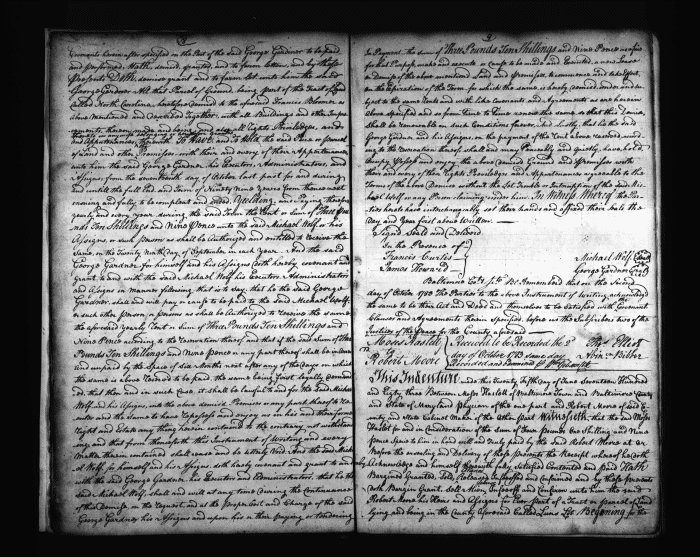 Covenants herein after specified on the Part of the said George Gardner to be paid
and performed. Hath, demised, granted, and to farm letten, and by these
Presents Doth, demise, grant and to farm let unto him the said
George Gardner All that Parcel of Ground, being part of the Tract of Land
called North Carolina, heretofore demised to the aforesaid Francis
as above Mentioned and Together, with all Buildings and other Improve-
ments thereon made and being, and also all Rights Priviledges, and
and Appurtenances, thereunto To Have and To Hold, the said Piece or parcel
of Land and other Premisses, with their and every of their Appurtenances
unto him the said George Gardner, his Executors, Administrators, and
Assigns from the seventeenth day of October last past for and during,
and untill the full End and Term of Ninety Nine Years from thence next
ensuing and fully to be compleat and ended, Yielding, and Paying therefor
yearly and every year during the said Term the Rent or Sum of Three Pou-
nds Ten Shillings and Nine Pence unto the said Michael Wolf or his
Assigns, or such person as shall be Authorized and entitled to receive the
Same, on the Twenty Ninth day of September in each year. And the said
George Gardner for himself and his Assigns doth hereby covenant and
grant to and with the said Michael Wolf his Executors Administrators
and Assigns in manner following, that is to say, that he the said George
Gardner, shall and will pay or cause to be paid to the said Michael Wolf
or such other Person or persons as shall be Authorized to receive the same
the aforesaid yearly Rent or Sum of Three Pounds Ten Shillings and
Nine Pence according to the reservation thereof and that if the said Sum of Three
Pounds Ten Shillings and Nine Pence or any part thereof shall be behind
and unpaid by the Space of Six Months next after any of the Days on which
the same is above reserved to be paid, the same being first legally demand-
ed, that then and in such Case, it shall be lawful to and for the said Michael
Wolf and his Assigns, into the above demised Premisses or any part thereof to re-
enter and the same to have repossess and enjoy as in his and their former
Right and Estate any thing herein contained to the contrary notwithstan-
ding and that from thenceforth this Instrument of Writing and every
Matter therein contained shall cease and be utterly void. And the said Mich-
ael Wolf, for himself and his Assigns, doth hereby covenant and grant to and
with the said George Gardner, his Executors and Administrators, that he the
said Michael Wolf, shall and will at any time during the Continuance
of this Demise, on the Request and at the Proper Cost and Charge of the said
George Gardner his Assigns and upon his or their paying or tendering
in Payment, the sum of Three Pounds Ten Shillings and Nine Pence as a fine
for that Purpose make and execute or cause to be made and Executed, a new Lease
or Demise of the above mentioned Land and Premisses, to commence and take Effect,
on the expiration of the Term for which the same is hereby demised under and sub-
ject to the same Rents and with like Covenants and Agreements as are herein
above specified and so from time to time renew the same so that this Demise,
shall be renewable on such Conditions forever. And Lastly, that he the said
George Gardner and his Assigns, on the payment of the Rent above reserved, accord-
ing to the reservation thereof, shall and may Peaceably and Quietly, have, hold
occupy Possess and enjoy the above demised Ground and Premisses with
their and every of their Rights Priviledges and Appurtenances agreeable to the
Terms of the above Demise without the Let Trouble or Interruption of the said Mi-
chael Wolf or any Person claiming under him. In Witness Whereof the Par-
ties hereto have interchangeably set their hands and affixed their Seals the
Day and Year first above Written.
Signed Seal'd and Deliver'd
In the Presence of
Francis Curtis
James Howard
Michael Wolf Seal
George Gardner Seal
Baltimore County Sst. Be it Remembered that on the Second
day of October 1783 The Parties to the above Instrument of Writing acknowledged
the same to be their Act and Deed and themselves to be satisfied with Covenant
Clauses and Agreements therein specified before us the Subscribers two of the
Justices of the Peace for the County aforesaid
Received to be Recorded the 2d
day of October 1783 same day
Recorded and Examined
This Indenture made this Twenty Fifth day of Seventeen Hundred
and Eighty three Between Moses Haslet of Baltimore Town and Baltimore County
and State of Maryland Physician of the one part and Robert Moore of said C-
ounty and State Cabinet Maker of the other part Witnesseth, that the said Moses
Haslet for and in Consideration of the Sum of Four Pounds One Shilling and Nine
Pence Specie to him in hand well and truly paid by the said Robert Moore at or
Before the ensealing and Delivery of these presents the Receipt whereof he doth
hereby Acknowledge and himself therewith fully satisfied Contented and paid Hath
Bargained Granted, Sold, Released Enfeoffed and Confirmed and by these presents
doth Bargain Grant, Sell Alien, Enfeoff and Confirm unto him the said
Robert Moore his Heirs and Assigns for Ever part of a Tract or parcel of Land
lying and being in the County aforesaid Called Lunns Lot Begining for the